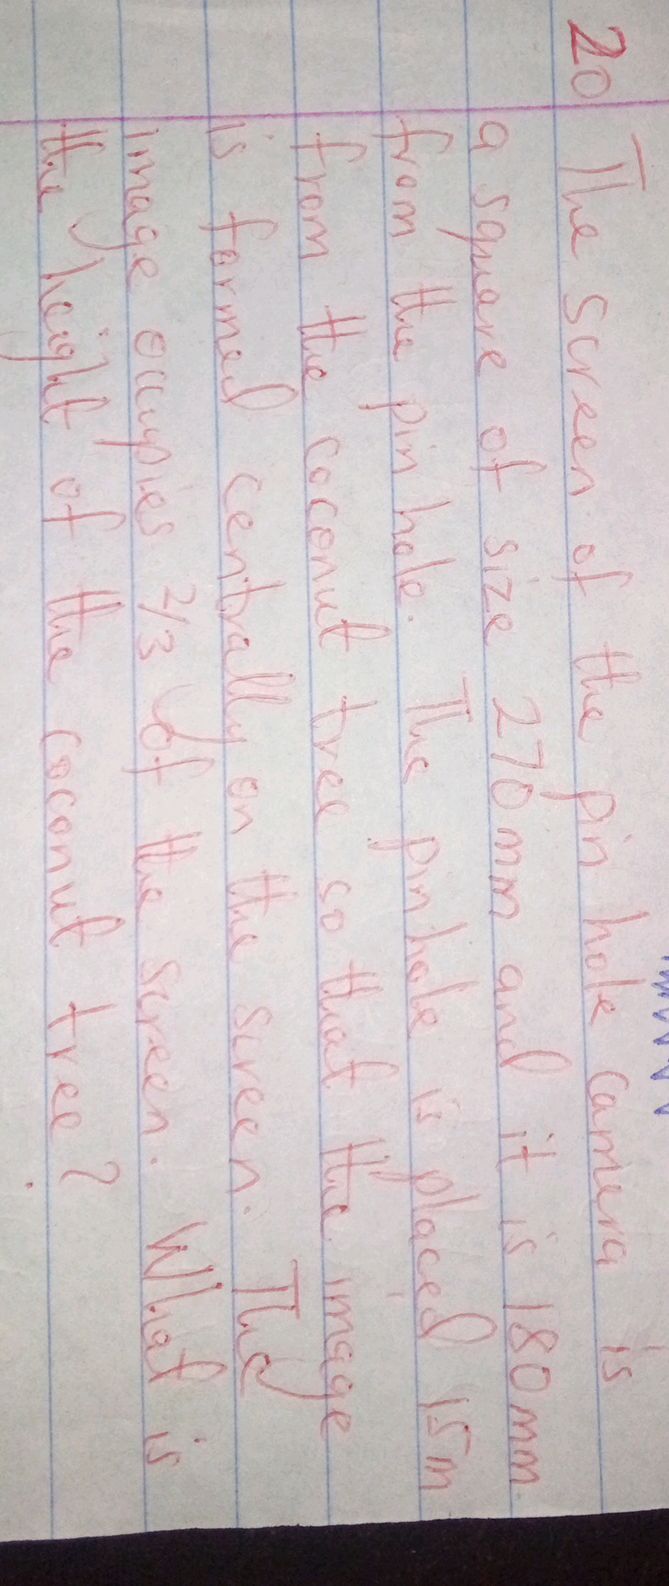 20 The screen of the pin hole camera is
a square of size 270mm and it is 180mm
from the pin hole. The pinhole is placed 15m
from the coconut tree so that the image
is formed centrally on the screen. The
image occupies 2/3 of the screen. What is
the height of the coconut tree?